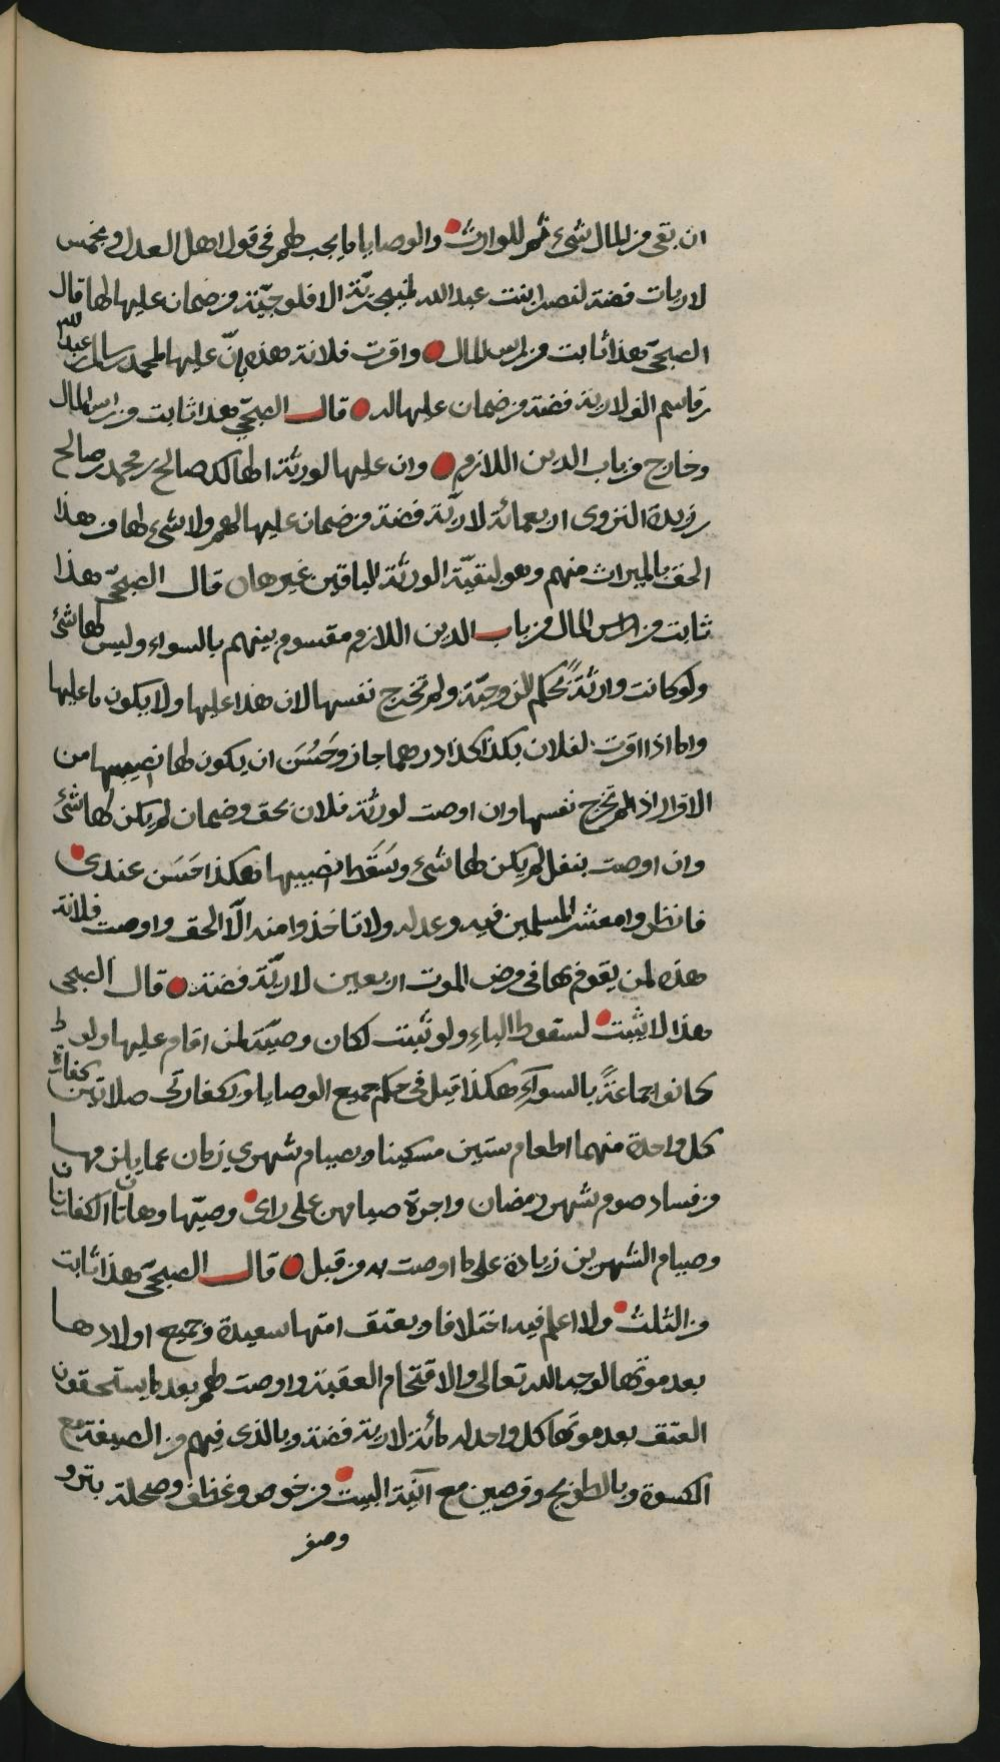 ان بقى من المال شيء ثم للوارث والوصايا ما يجب لهم في قول اهل العدل وبخمس
لاريات فضة لنصرا بنت عبدالله الافلوجيّة من ضمان عليها لها قال
الصبحيّ هذا ثابت من راس المال واقرت فلانة هذه بانّ عليها لمحمد بن سالم بن عبدالله
بن قاسم الف لارية فضة من ضمان عليها له قال الصبحيّ هذا ثابت من راس المال
وخارج من باب الدين اللازم وان عليها لورثة اخالها صالح بن محمد بن صالح
النزوى اربعمائة لاريّة فضة من ضمان عليها لهم ولا شيء لها من هذا
الحق بالميراث منهم وهو لبقيّة الورثة الباقين غيرها قال الصبحيّ هذا
ثابت من راس المال من باب الدين اللازم مقسوم بينهم بالسواء وليس لها شئ
ولو كانت وارثة بحكم الزوجيّة ولم تخرج نفسها لان هذا عليها ولا يكون ما عليها
واما اذا اقرت لفلان بكذا كذا درهما جاز وحَسُنَ ان يكون لها نصيبها من
الاقرار اذ لم تخرج نفسها وان اوصت لورثة فلان بحق وضمان لم يكن لها شئ
وان اوصت بنفل لم يكن لها شيء وسَقَط نصيبها هكذا حَسَن عندي
فانظروا معشر المسلمين فيه وعدله ولا تاخذوا منه الّا الحق واوصت فلانة
هذه لمن يقوم بها في مرض الموت اربعين لاريّة فضة قال الصبحي
هذا لا يثبت لسقوط الباءِ ولو ثبتت لكان وصيّة لمن اقام عليها ولو
كانوا جماعةً بالسوآءِ هكذا قيل في حكم جميع الوصايا وبكفارتي صلاتين كفارة
كل واحدة منهما اطعام ستين مسكينا وبصيام شهري زمان عما يلزمها
من فساد صوم شهر رمضان واجرة صيامهن على راى وصيّها وهاتان الكفارتان
وصيام الشهرين زيادة على ما اوصت به من قبل قال الصبحيّ هذا ثابت
من الثلث ولا اعلم فيه اختلافا وبعتق امتها سعيدة وجميع اولادها
بعد موتها لوجه الله تعالى والاقتحام العقبة واوصت لهم بعد ما يستحقون
العتق بعد موتها كل واحد له مائة لارية فضة وبالذى فيهم من الصيغة مع
الكسوة وبالطوبج وقرصين مع آنية البيت من خوص وغضف وصحلة بترو
وصفر